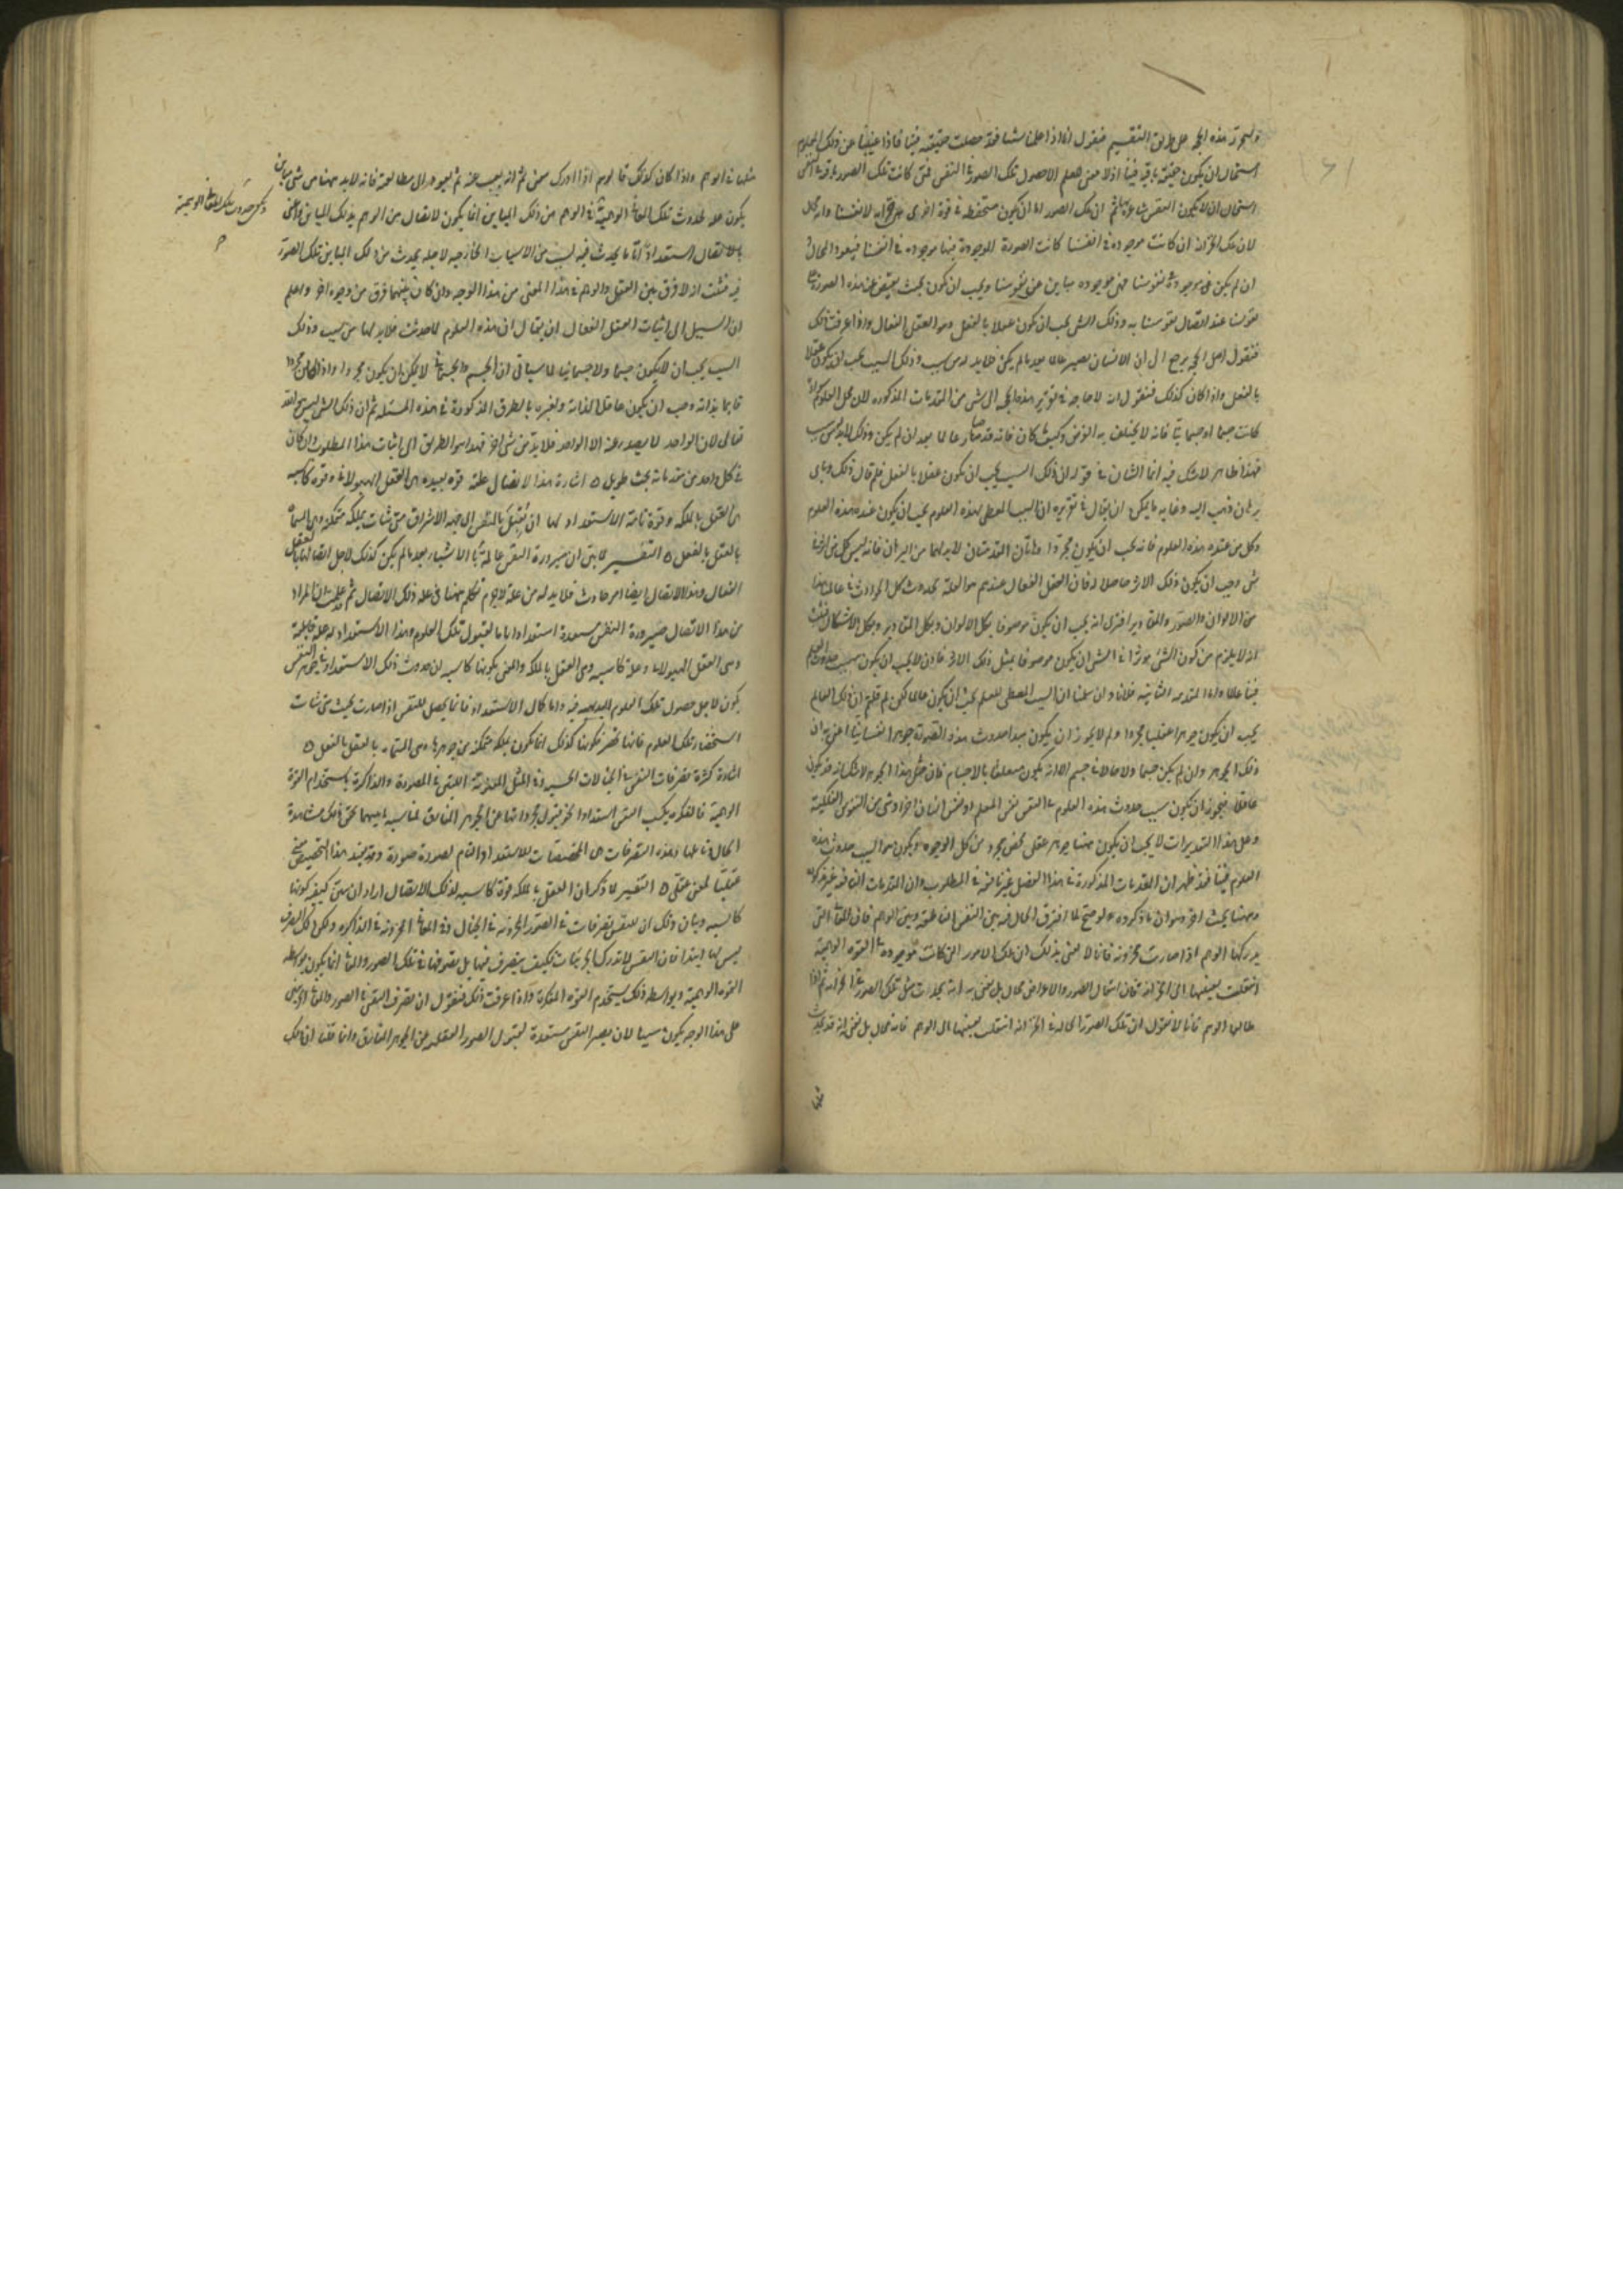 ولنحرر هذه الحجة على طريق التقسيم فنقول انا اذا علمنا شيئا فقد حصلت حقيقته فينا فاذا غبنا عن ذلك المعلوم
استحال ان يكون حقيقته باقية فينا اذ لا معنى للعلم الا حصول تلك الصورة في النفس فمتى كانت تلك الصورة باقية في النفس
استحال ان لا يكون النفس شاعرة بها ثم ان تلك الصور اما ان يكون متحفظة في قوة اخرى هي خزانة لانفسنا وانه محال
لان تلك الخزانة ان كانت موجودة في انفسنا كانت الصورة الموجودة فيها موجودة في انفسنا فيعود المحال
ان لم يكن هى موجودة في نفوسنا فهى موجودة مباين عن نفوسنا ويجب ان يكون بحيث يفيض عنه هذه الصورة على
نفوسنا عند اتصال نفوسنا به وذلك الشى يجب ان يكون عقلا بالفعل وهو العقل الفعال واذا عرفت ذلك
فنقول اصل الحجة يرجع الى ان الانسان يصير عالما بعد ما لم يكن فلا بد له من سبب وذلك السبب يجب ان يكون عقلا
بالفعل واذا كان كذلك فنقول انه لا حاجة في تقرير هذه الحجة الى شى من المقدمات المذكورة لان محل العلوم سواء
كانت جسما او جسمانيا فانه لا يختلف به الغرض وكيف كان فانه قد صار عالما بعد ان لم يكن وذلك لا بد له من سبب
فهذا ظاهر لا شك فيه انما الشان في قوله ان ذلك السبب يجب ان يكون عقلا بالفعل فلم قال ذلك وباى
برهان ذهب اليه وغاية ما يمكن ان يقال في تقريره ان السبب المعطى لهذه العلوم يجب ان يكون عنده هذه العلوم
وكل من عنده هذه العلوم فانه يجب ان يكون مجردا وهاتان المقدمتان لا بد لهما من البرهان فانه ليس كل من افاد
شى وجب ان يكون ذلك الاثر حاصلا له فان العقل الفعال عندهم هو العلة لحدوث كل الحوادث في عالمنا هذا
من الالوان والصور والمقادير افترى انه يجب ان يكون موصوفا بكل الالوان وبكل المقادير وبكل الاشكال فثبت
انه لا يلزم من كون الشى مؤثرا في الشى ان يكون موصوفا بمثل ذلك الاثر فاذن لا يجب ان يكون سبب حدوث العلم
فينا عالما واما المقدمة الثانية فلانا وان سلمنا ان السبب المعطى للعلم يجب ان يكون عالما لكن لم قلتم ان ذلك العالم
يجب ان يكون جوهرا عقليا مجردا ولم لا يجوز ان يكون مبدا حدوث هذه الصورة جوهرا نفسانيا اعنى به ان
ذلك الجوهر وان لم يكن جسما ولا حالا في جسم الا انه يكون متعلقا بالاجسام فان مثل هذا الجوهر لا شك انه قد يكون
عاقلا فيجوز ان يكون سبب حدوث هذه العلوم في النفس نفس المعلم او نفس انسان اخر او شى من النفوس الفلكية
وعلى هذا التقديرات لا يجب ان يكون هنهنا جوهر عقلى محض مجرد من كل الوجوه ويكون هو السبب لحدوث هذه
العلوم فينا فقد ظهر ان المقدمات المذكورة في هذا الفصل غير نافعة في المطلوب وان المقدمات النافعة غير مذكورة
وههنا بحث اخر وهو ان ما ذكروه لو صح لما افترق الحال فيه بين النفس الناطقة وبين الوهم فان المعانى التى
يدركها الوهم اذا صارت مخزونة فانا لا نعنى بذلك ان تلك الامور التى كانت موجودة في القوة الوهمية
انتقلت بعينها الى الخزانة فان انتقال الصور والاعراض محال بل نعنى به انه يحدث مثل تلك الصورة في الخزانة ثم اذا
طالعها الوهم فانا لا نقول ان تلك الصورة الحالة في الخزانة انتقلت بعينها الى الوهم فانه محال بل نعنى انه قد يحدث
مثلها في الوهم واذا كان كذلك فالوهم اذا ادرك معنى ثم انه يغيب عنه ثم يعود الى مطالعته فانه لا بد ههنا من شى مباين
يكون علة لحدوث تلك المعانى الوهمية في الوهم من ذلك المباين انما يكون لاتصال من الوهم بذلك المباين واعنى
بالاتصال استعدادا تاما يحدث فيه لسبب من الاسباب الخارجية لاجله يحدث من ذلك المباين تلك الصورة
فيه فثبت انه لا فرق بين العقل والوهم في هذا المعنى من هذا الوجه وان كان بينهما فرق من وجوه اخر واعلم
ان السبيل الى اثبات العقل الفعال ان يقال ان هذه العلوم لما حدثت فلا بد لها من سبب وذلك
السبب يجب ان لا يكون جسما ولا جسمانيا لما سياتى ان الجسم والجسمانى لا يمكن ان يكون مجردا واذا كان مجردا
قايما بذاته وجب ان يكون عاقلا لذاته ولغيره بالطرق المذكورة في هذه المسئلة ثم ان ذلك الشى ليس هو الله
تعالى لان الواحد لا يصدر عنه الا الواحد فلا بد من شى اخر فهذا هو الطريق الى اثبات هذا المطلوب وان كان
في كل واحد من مقدماته بحث طويل ه اشارة هذا الاتصال علته قوة بعيدة هى العقل الهيولانى وقوة كاسبة
هى العقل بالملكة وقوة تامة الاستعداد لها ان تقبل بالنفس الى جهة الاشراق متى شاءت بملكة متمكنة وهى المسماة
بالعقل بالفعل ه التفسير لما بين ان صيرورة النفس عالمة بالاشياء بعد ما لم يكن كذلك لاجل اتصالها بالعقل
الفعال وهذا الاتصال ايضا امر حادث فلا بد له من علة لا جرم تكلم ههنا في علة ذلك الاتصال ثم قد علمت ان المراد
من هذا الاتصال صيرورة النفس مستعدة استعدادا تاما لقبول تلك العلوم وهذا الاستعداد له علة قابلية
وهى العقل الهيولانى وعلة كاسبة وهى العقل بالملكة والمعنى بكونها كاسبة ان حدوث ذلك الاستعداد في جوهر النفس
يكون لاجل حصول تلك العلوم البديهية فيه واما كمال الاستعداد فانما يحصل للنفس اذا صارت بحيث متى شاءت
استحضار تلك العلوم فانها تحضر فكونها كذلك انما يكون بملكة متمكنة من جوهرها وهى المسماة بالعقل بالفعل ه
اشارة كثرة تصرفات النفس في الخيالات الحسية وفي المثل المعنوية اللتين في المصورة والذاكرة باستخدام القوة
الوهمية والمفكرة يكسب النفس استعدادا نحو قبول مجرداتها عن الجوهر المفارق لمناسبة ما بينهما تحقق ذلك مشاهدة
الحال وتاملها وهذه التصرفات هى المخصصات للاستعداد التام لصورة صورة وقد يفيد هذا التخصيص معنى
عقليا لمعنى عقلى ه التفسير لما ذكر ان العقل بالملكة قوة كاسبة لذلك الاتصال اراد ان يبين كيفية كونها
كاسبة وبيان ذلك ان للنفس تصرفات في الصور المخزونة في الخيال وفي المعانى المخزونة في الذاكرة ولكن ذلك التصرف
ليس لها ابتداء فان النفس لا تدرك الجزئيات فكيف يتصرف فيها بل تصرفها في تلك الصور والمعانى انما يكون بواسطة
القوة الوهمية وبواسطة ذلك يستخدم القوة المفكرة واذا عرفت ذلك فنقول ان تصرف النفس في الصور والمعانى الجزئية
على هذا الوجه يكون سببا لان يصير النفس مستعدة لقبول الصور العقلية من الجوهر المفارق وانما قلنا ان تلك